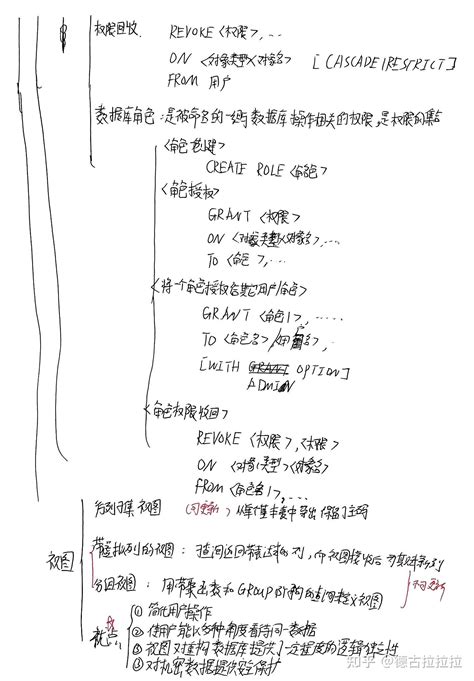 权限回收 REVOKE <权限>, ...
ON <对象类型><对象名> [CASCADE|RESTRICT]
FROM 用户
数据库角色:是被命名的一组与数据库操作相关的权限,是权限的集合
<角色创建>
CREATE ROLE <角色>
<角色授权>
GRANT <权限>
ON <对象类型><对象名>, ...
TO <角色>, ...
<将一个角色授权给其它用户/角色>
GRANT <角色1>, ......
TO <角色名>/用户名>, ...
[WITH GRANT OPTION]
ADMIN
<角色权限收回>
REVOKE <权限>, <权限>
ON <对象类型><对象名>
FROM <角色1>, ...
视图
行列子集视图 (可更新) 从单个基本表中导出 保留了主码
带虚拟列的视图:
分组视图:用带聚集函数和GROUP BY 的查询来定义视图
不可更新
优点
① 简化用户操作
② 使用户能以多种角度看待同一数据
③ 视图对重构数据库提供了一定程度的逻辑独立性
④ 对机密数据提供安全保护
知乎 @德古拉拉拉